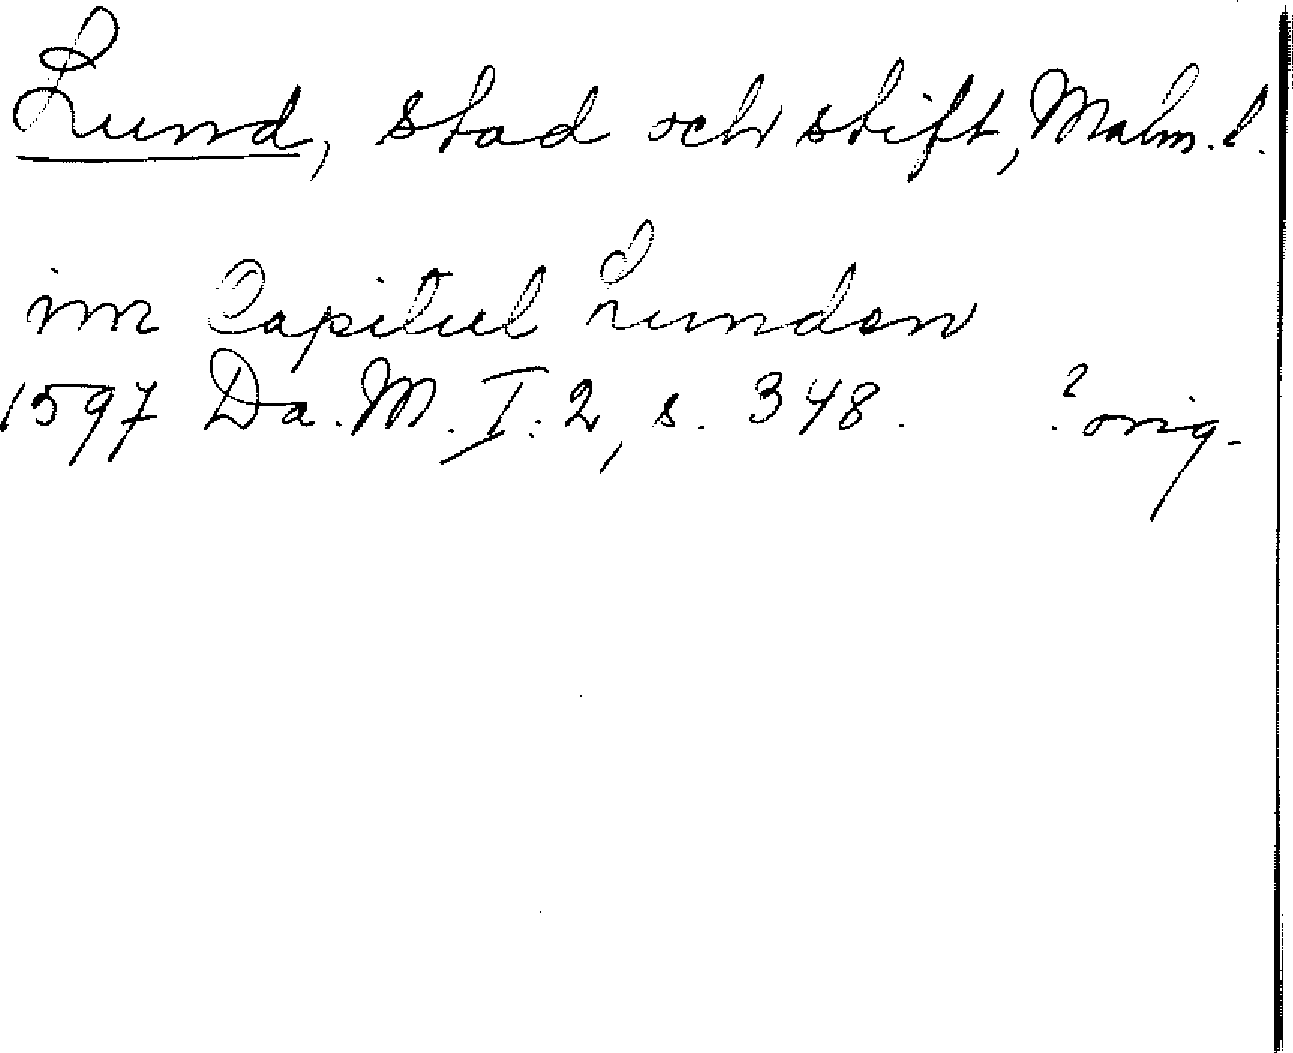 Lund, stad och stift, Malm. l.
im Capitul Lunden
1597 Da. M. I: 2, s. 348. ? orig.